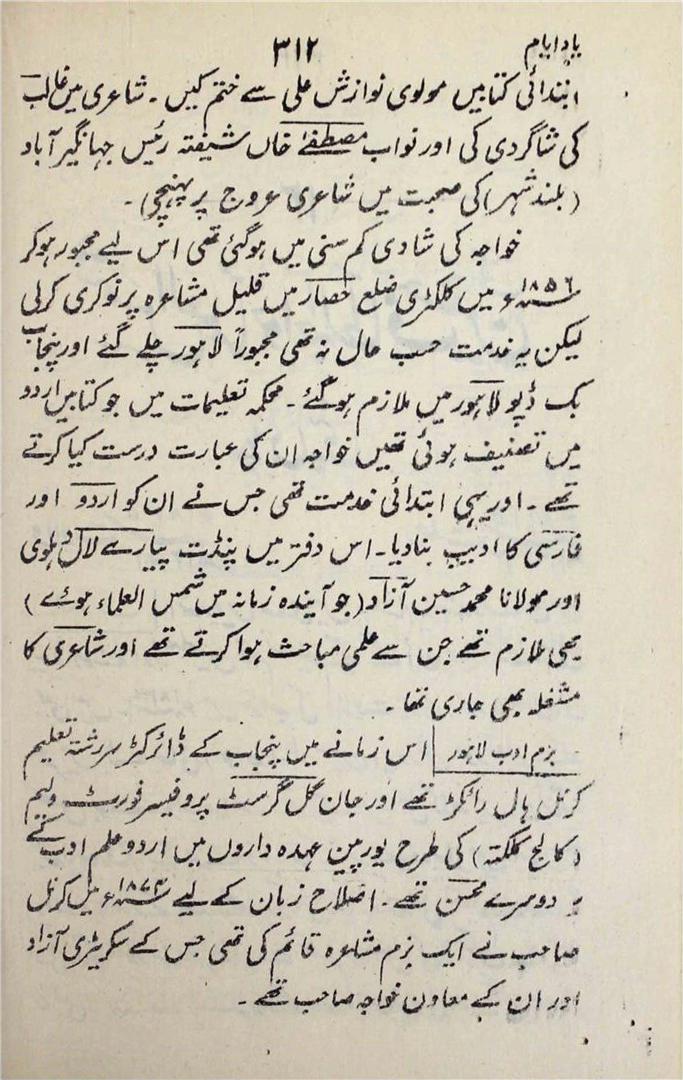 یادِ ایام ۳۱۲
ابتدائی کتابیں مولوی نوازش علی سے ختم کیں۔ شاعری میں غالب
کی شاگردی کی اور نواب مصطفےٰ خاں شیفتہ رئیس جہانگیرآباد
(بلند شہر) کی صحبت میں شاعری عروج پر پہنچی)۔
خواجہ کی شادی کم سنی میں ہوگئی تھی اس لیے مجبور ہوکر
۱۸۵۶ء میں کلکٹری ضلع حصار میں قلیل مشاعرہ پر نوکری کرلی
لیکن یہ خدمت حسب حال نہ تھی مجبوراً لاہور چلے گئے اور پنجاب
بک ڈپو لاہور میں ملازم ہوگئے۔ محکمہ تعلیمات میں جو کتابیں اردو
میں تصنیف ہوئی تھیں خواجہ ان کی عبارت درست کیا کرتے
تھے۔ اور یہی ابتدائی خدمت تھی جس نے ان کو اردو اور
فارسی کا ادیب بنادیا۔ اس دفتر میں پنڈت پیارے لال دہلوی
اور مولانا محمد حسین آزاد (جو آیندہ زمانہ میں شمس العلماء ہوئے)
بھی ملازم تھے جن سے علمی مباحث ہوا کرتے تھے اور شاعری کا
مشغلہ بھی جاری تھا۔
بزم ادب لاہور اس زمانے میں پنجاب کے ڈائرکٹر سررشتہ تعلیم
کرنل ہال رائکڑ تھے اور جان گل گرسٹ پروفیسر فورٹ ولیم
(کالج کلکتہ) کی طرح یورپین عہدہ داروں میں اردو علم ادب کے
دوسرے محسن تھے۔ اصلاح زبان کے لیے ۱۸۷۴ء میں کرنل
صاحب نے ایک بزم مشاعرہ قائم کی تھی جس کے سکریٹری آزاد
اور ان کے معاون خواجہ صاحب تھے۔